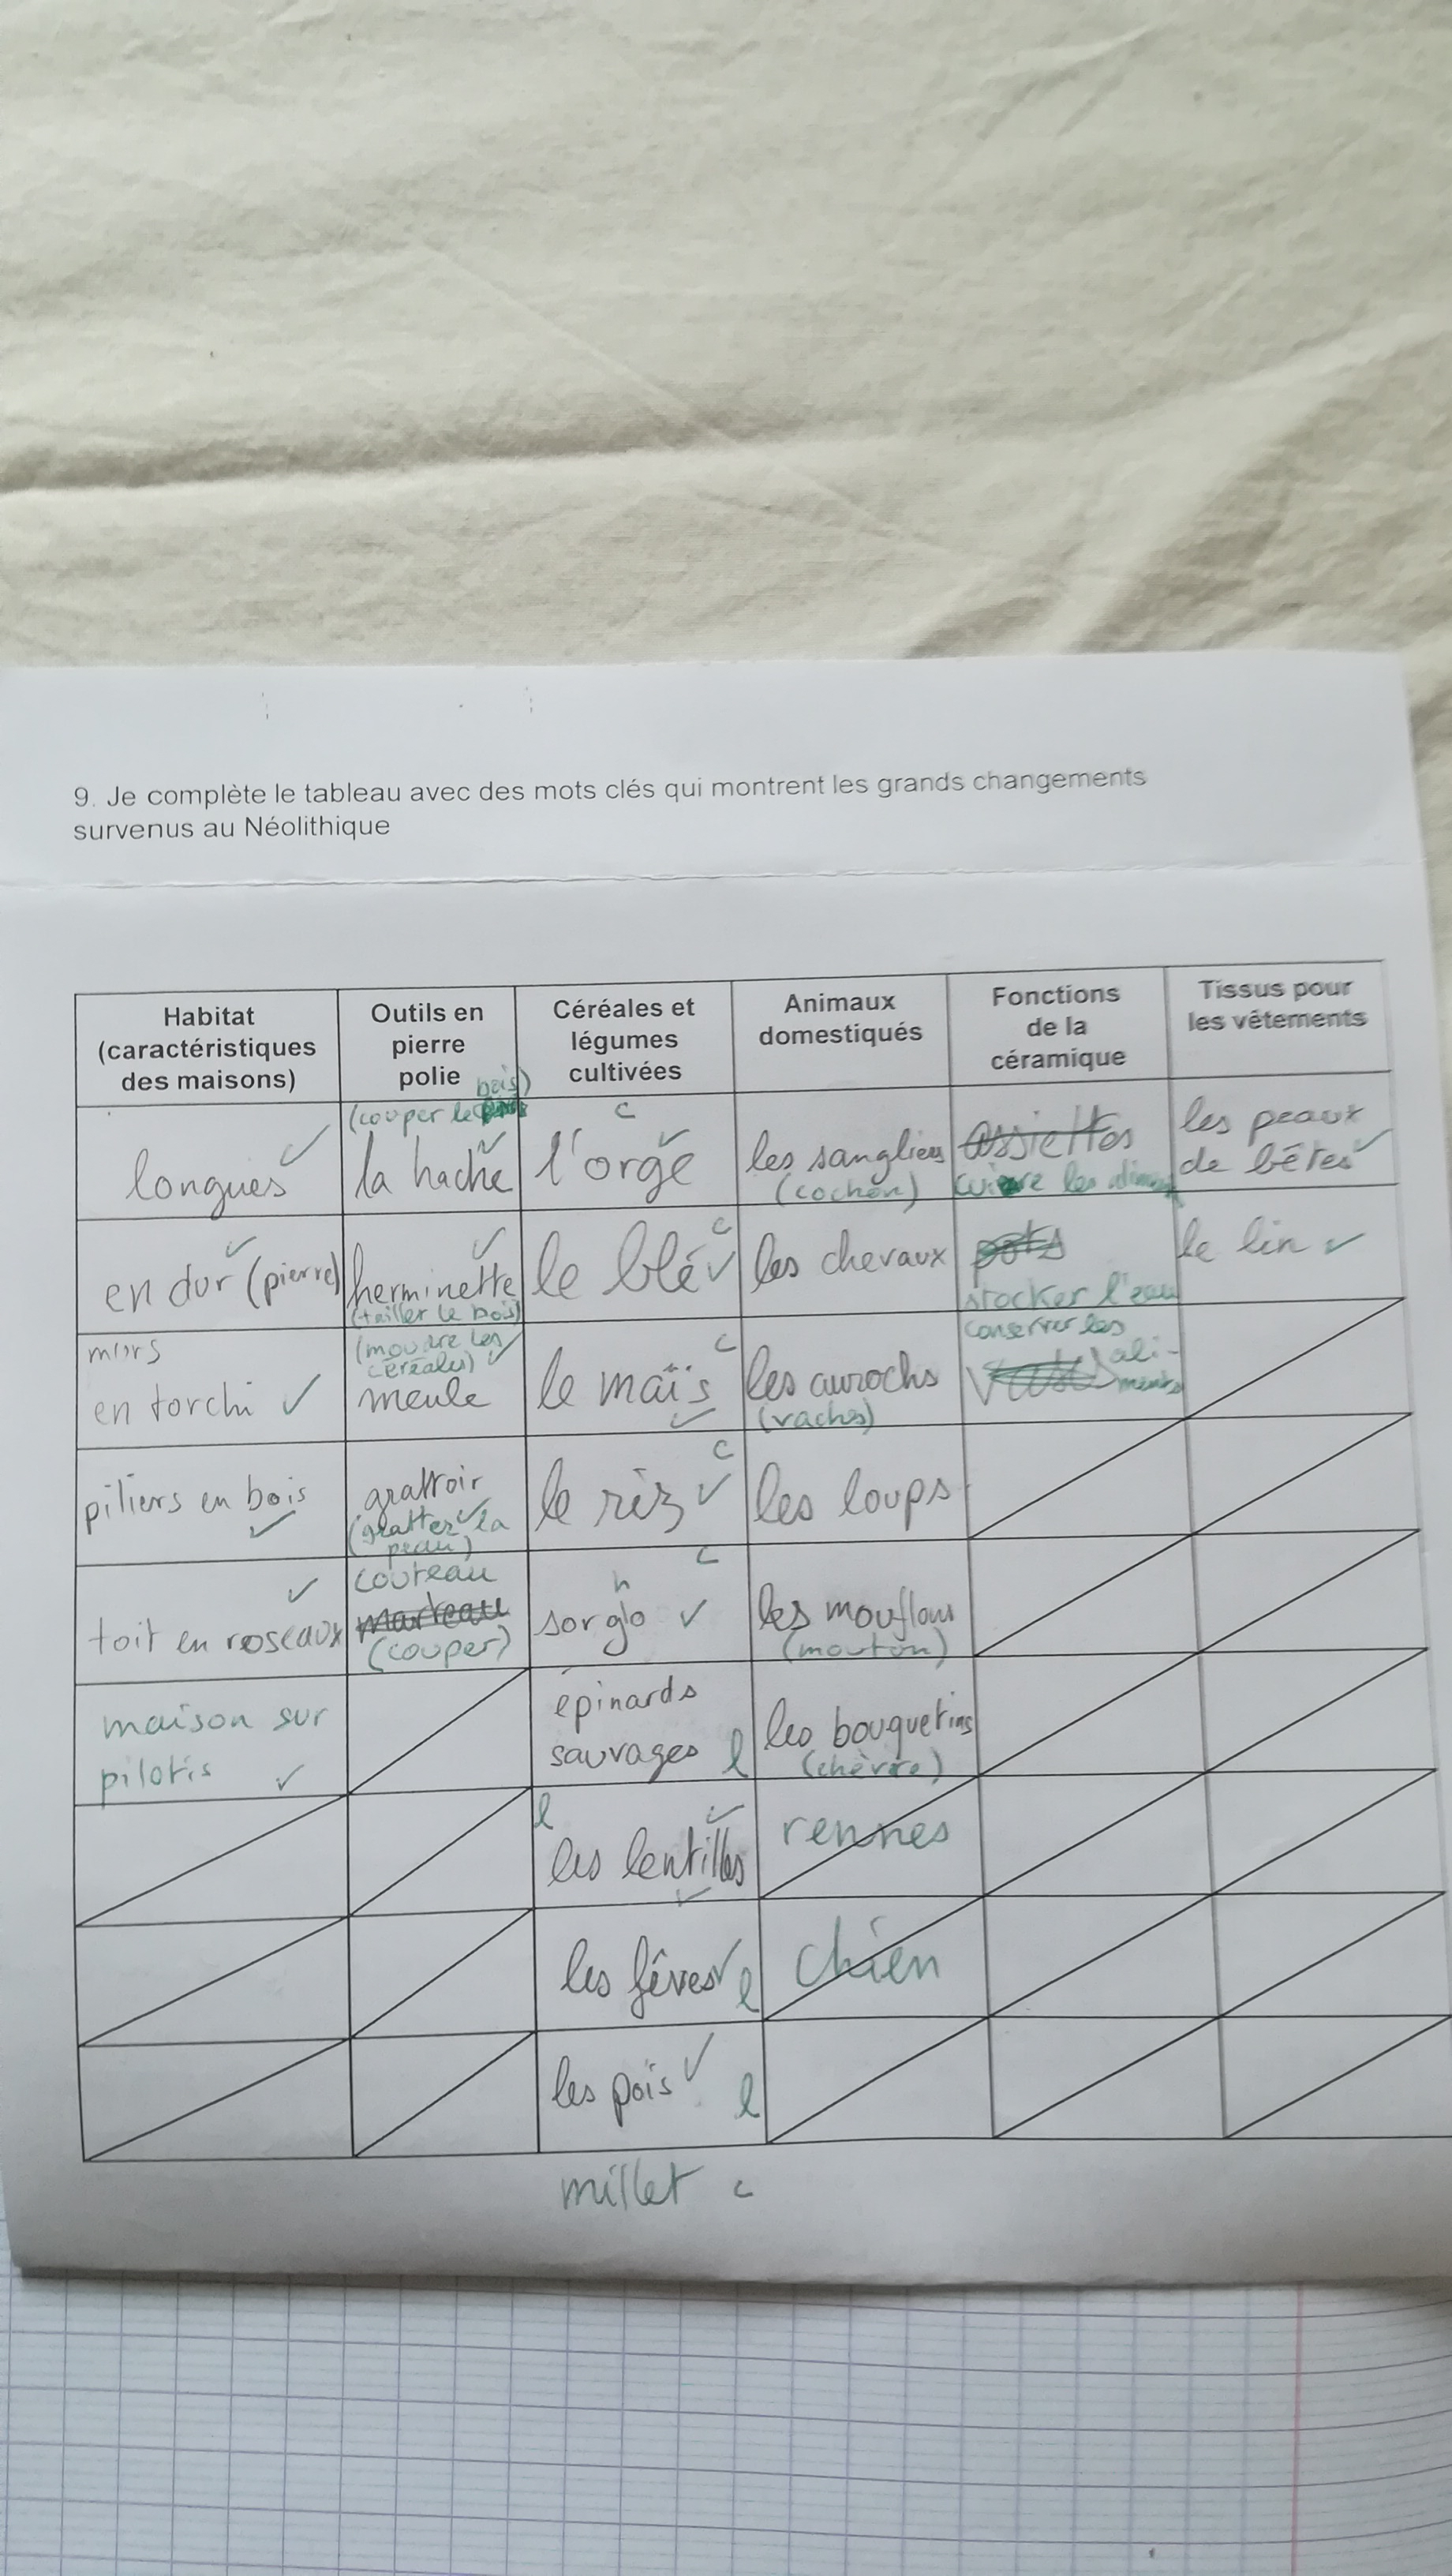 9. Je complète le tableau avec des mots clés qui montrent les grands changements
survenus au Néolithique
Habitat
(caractéristiques
des maisons)
Outils en
pierre
polie
Céréales et
légumes
cultivées
Animaux
domestiqués
Fonctions
de la
céramique
Tissus pour
les vêtements
longues
(couper le bois)
la hache
c
l'orge
les sangliers
(cochon)
assiettes
cuire les aliments
les peaux
de bêtes
en dur (pierre)
herminette
(tailler le bois)
c
le blé
les chevaux
pots
stocker l'eau
le lin
murs
en torchi
(moudre les
céréales)
meule
c
le maïs
les aurochs
(vaches)
conserver les
ali-
ments
piliers en bois
grattoir
(gratter la
peau)
c
le riz
les loups
toit en roseaux
couteau
marteau
(couper)
c
h
sorgo
les mouflons
(mouton)
maison sur
pilotis
épinards
sauvages l
les bouquetins
(chèvre)
l
les lentilles
rennes
les fêves l
chien
les pois l
millet c